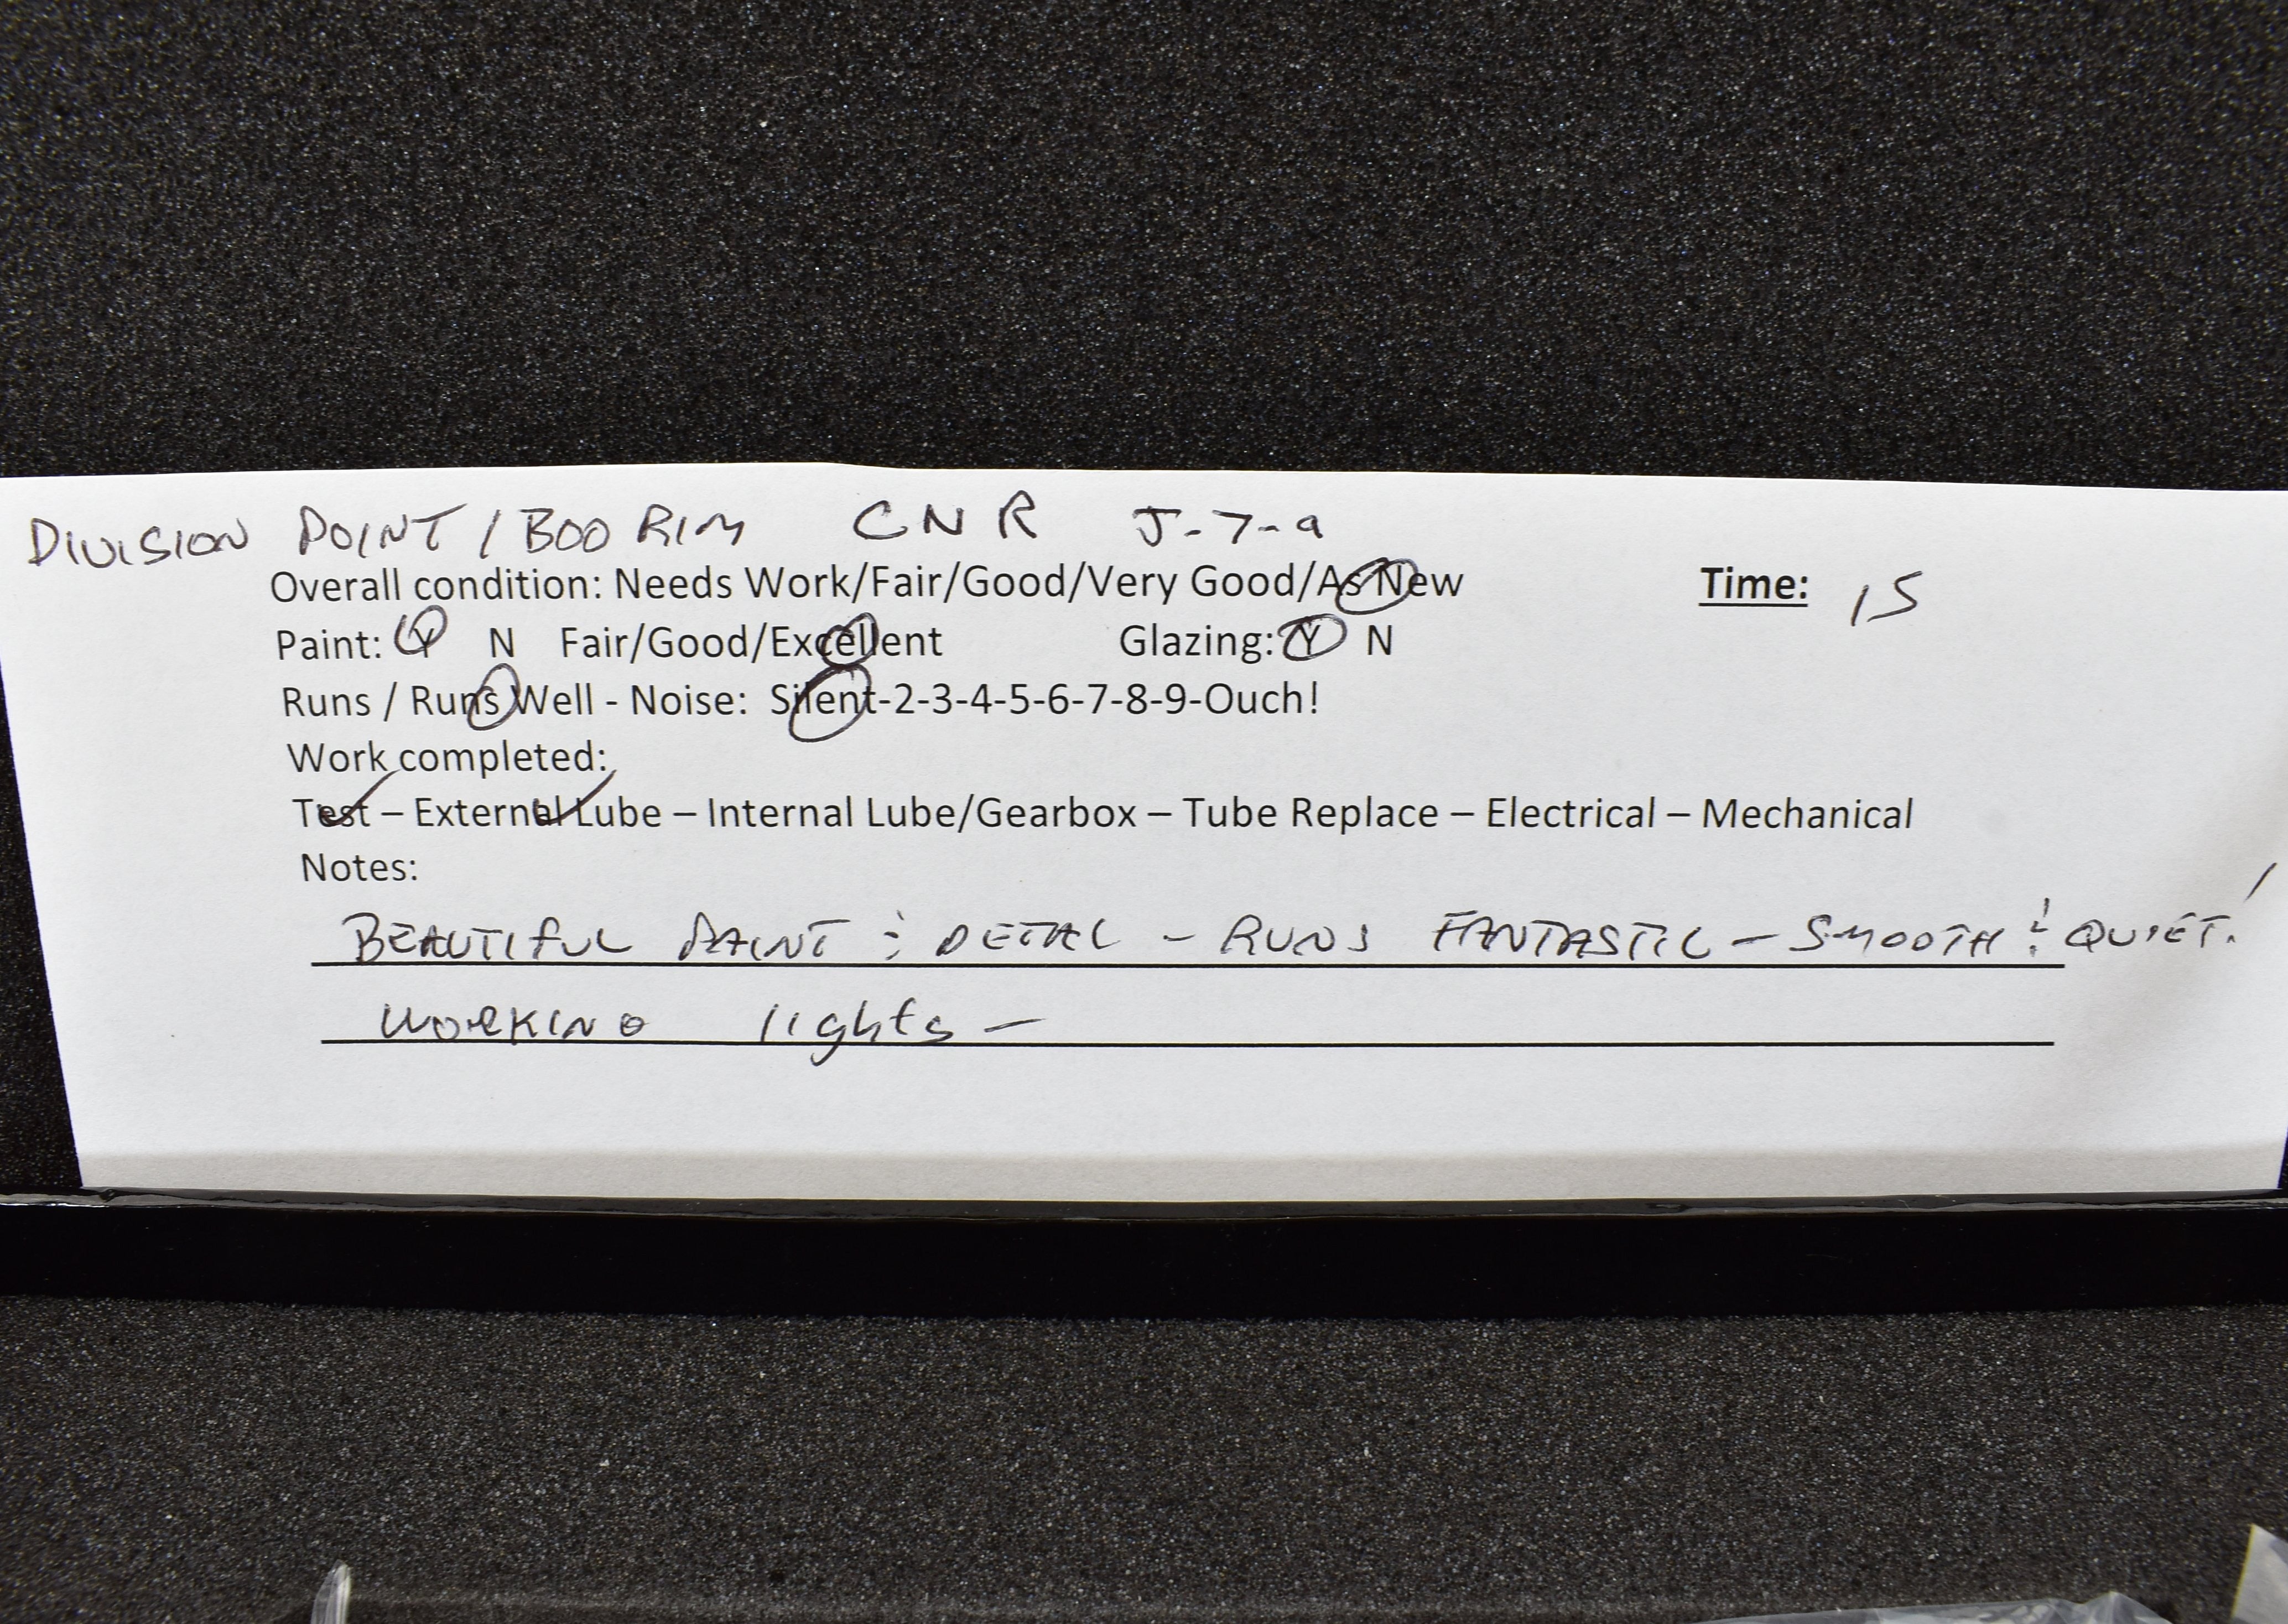 DIVISION POINT / BOO RIM CNR J-7-a
Overall condition: Needs Work/Fair/Good/Very Good/As New Time: 15
Paint: Y N Fair/Good/Excellent Glazing: Y N
Runs / Runs Well - Noise: Silent-2-3-4-5-6-7-8-9-Ouch!
Work completed:
Test – External Lube – Internal Lube/Gearbox – Tube Replace – Electrical – Mechanical
Notes:
BEAUTIFUL PAINT & DETAIL - RUNS FANTASTIC - SMOOTH & QUIET!
WORKING lights -